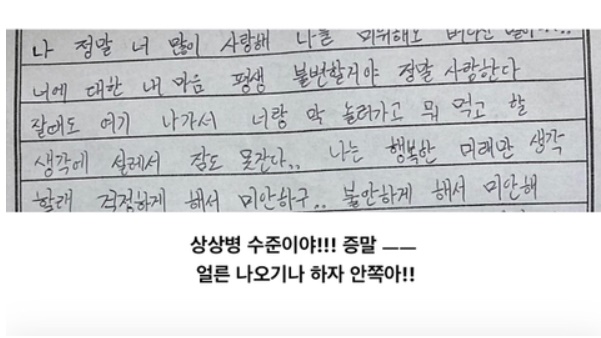 나 정말 너 많이 사랑해 나를 미워해도
너에 대한 내 마음 평생 불변할거야 정말 사랑한다
잘때도 여기 나가서 너랑 막 놀러가고 뭐 먹고 할
생각에 설레서 잠도 못잔다.. 나는 행복한 미래만 생각
할래 걱정하게 해서 미안하구.. 불안하게 해서 미안해
상상병 수준이야!!! 증말 ㅡㅡ
얼른 나오기나 하자 안쪽아!!